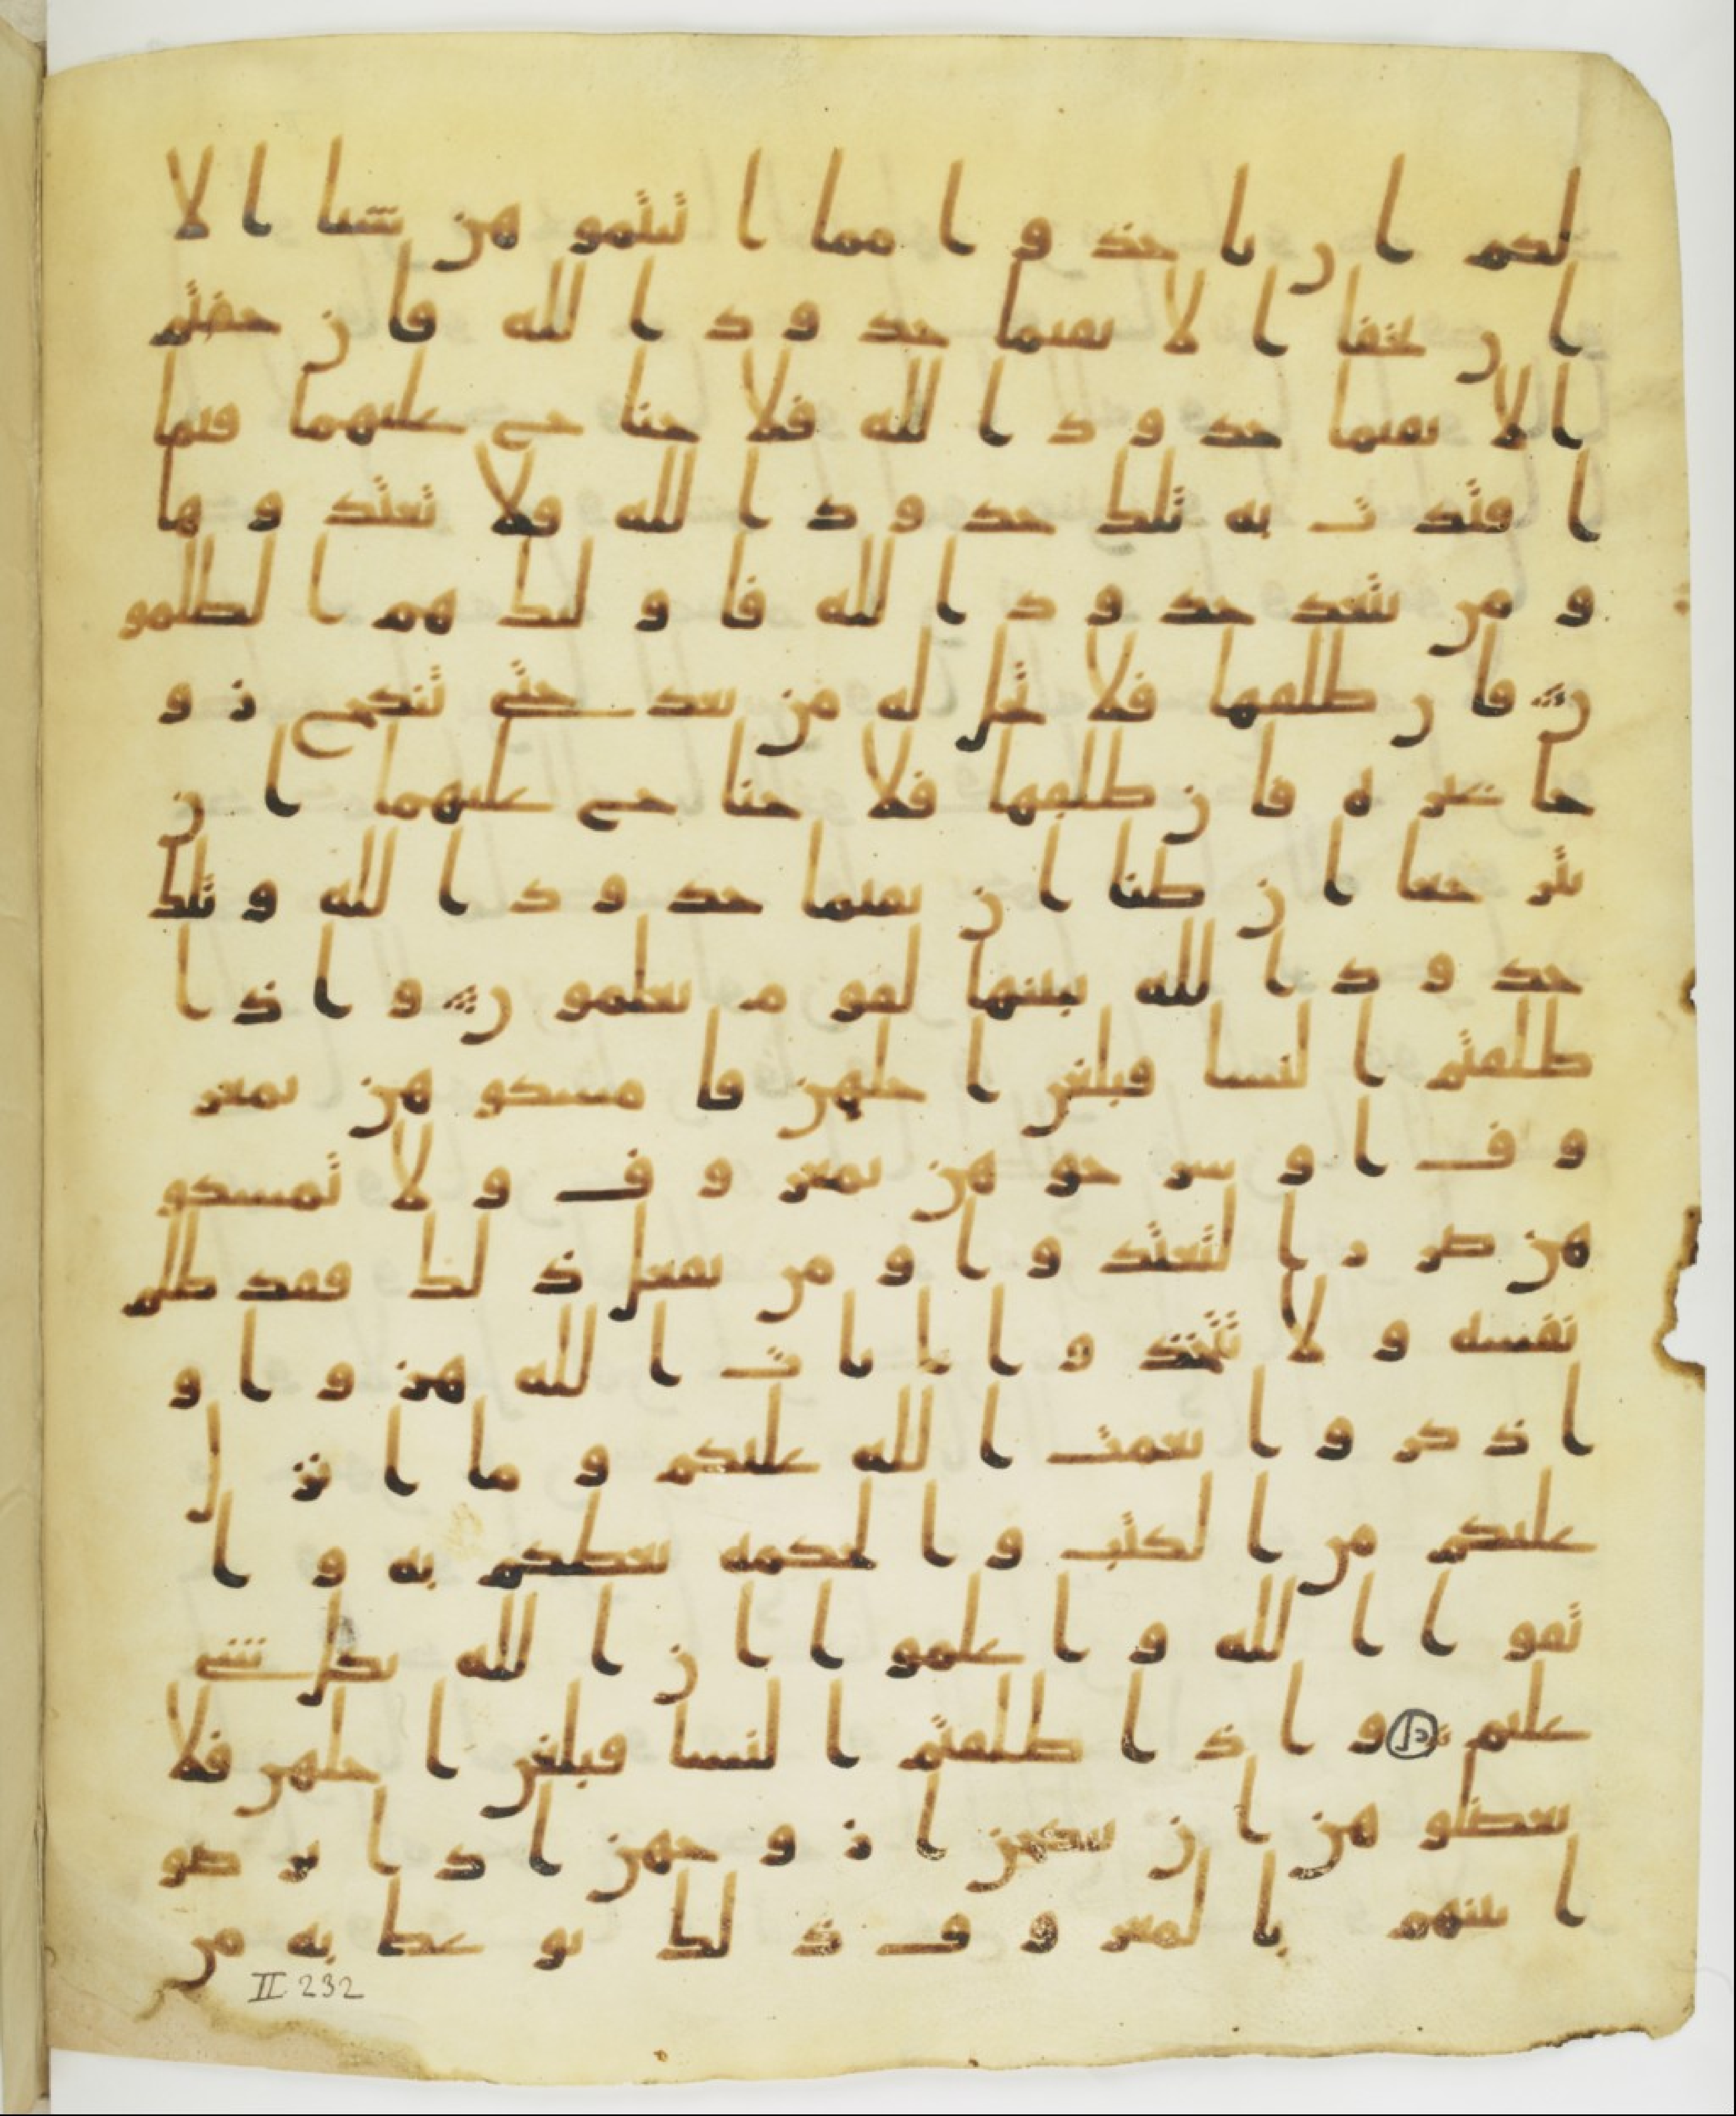 لكم ا ن يا خذ و ا مما ا تيتمو هن شيا ا لا
ا ن يخفا ا لا يقيما حد و د ا لله فا ن خفتم
ا لا يقيما حد و د ا لله فلا جنا ح عليهما فيما
ا فتد ت به تلك حد و د ا لله فلا تعتد و ها
و من يتعد حد و د ا لله فا و لئك هم ا لظلمو
ن فا ن طلقها فلا تحل له من بعد حتى تنكح ز و
جا غير ه فا ن طلقها فلا جنا ح عليهما ا ن
يتر جعا ا ن ظنا ا ن يقيما حد و د ا لله و تلك
حد و د ا لله يبينها لقو م يعلمو ن و ا ذ ا
طلقتم ا لنسا فبلغن ا جلهن فا مسكو هن بمعر
و ف ا و سر حو هن بمعر و ف و لا تمسكو
هن ضر ر ا لتعتد و ا و من يفعل ذ لك فقد ظلم
نفسه و لا تتخذ و ا ا يا ت ا لله هز و ا و
ا ذ كر و ا نعمت ا لله عليكم و ما ا نز ل
عليكم من ا لكتب و ا لحكمه يعظكم به و ا
تقو ا ا لله و ا علمو ا ا ن ا لله بكل شى
عليم و ا ذ ا طلقتم ا لنسا فبلغن ا جلهن فلا
تعضلو هن ا ن ينكحن ا ز و جهن ا ذ ا تر ضو
ا بينهم با لمعر و ف ذ لك يو عظ به من
II 232